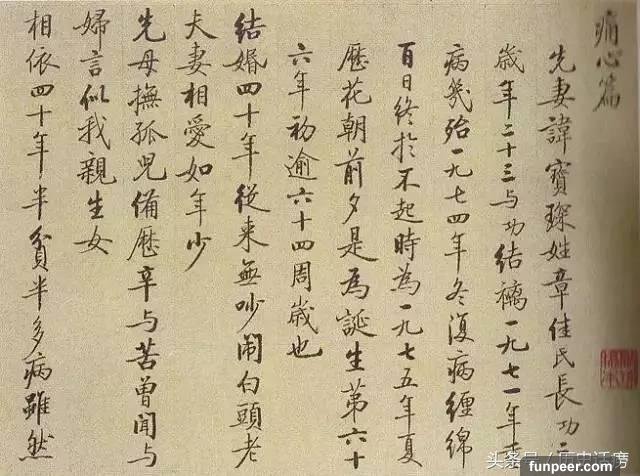 痛心篇
先妻諱寶琛姓章佳氏長功二
歲年二十三与功結褵一九七一年重
病幾殆一九七四年冬復病纏綿
百日終於不起時為一九七五年夏
歷花朝前夕是為誕生第六十
六年初逾六十四周歲也
結婚四十年從来無吵鬧白頭老
夫妻相愛如年少
先母撫孤児備歷辛与苦曾聞与
婦言似我親生女
相依四十年半貧半多病雖然
头条号
funpeer.com